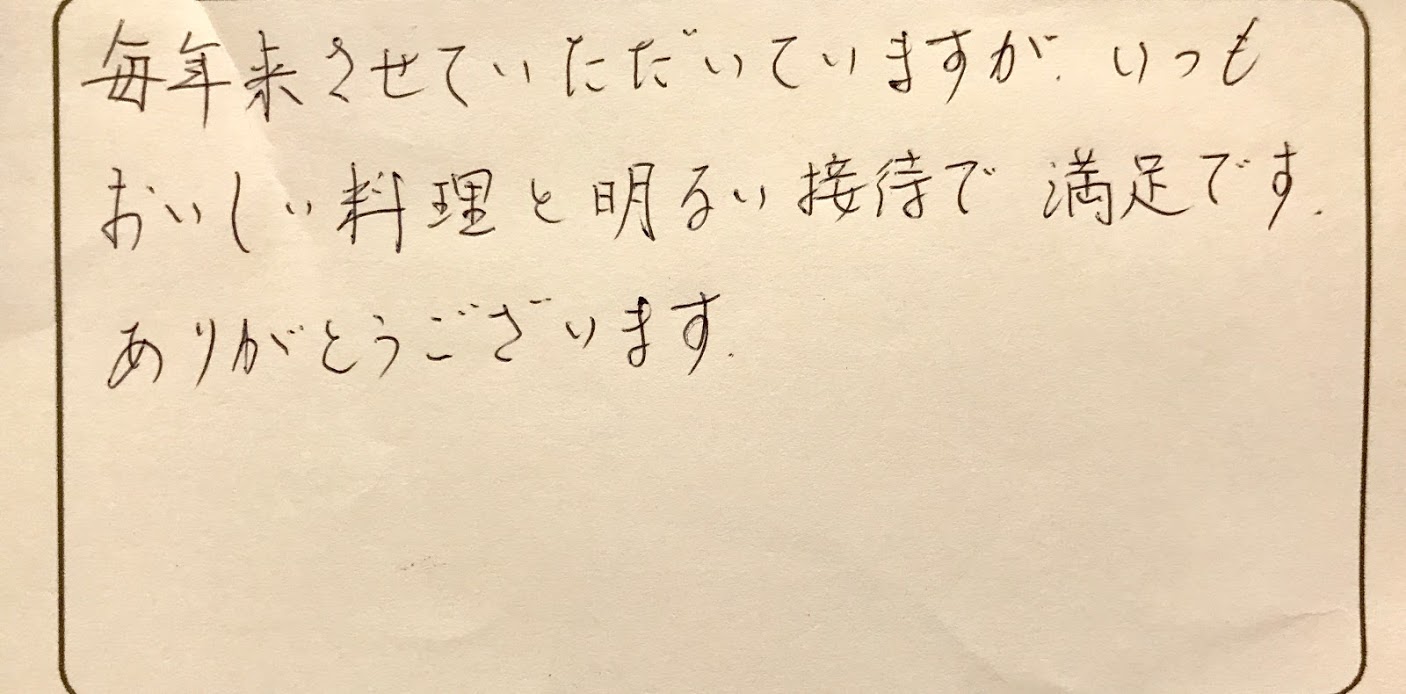 毎年来させていただいていますが、いつも
おいしい料理と明るい接待で満足です.
ありがとうございます.